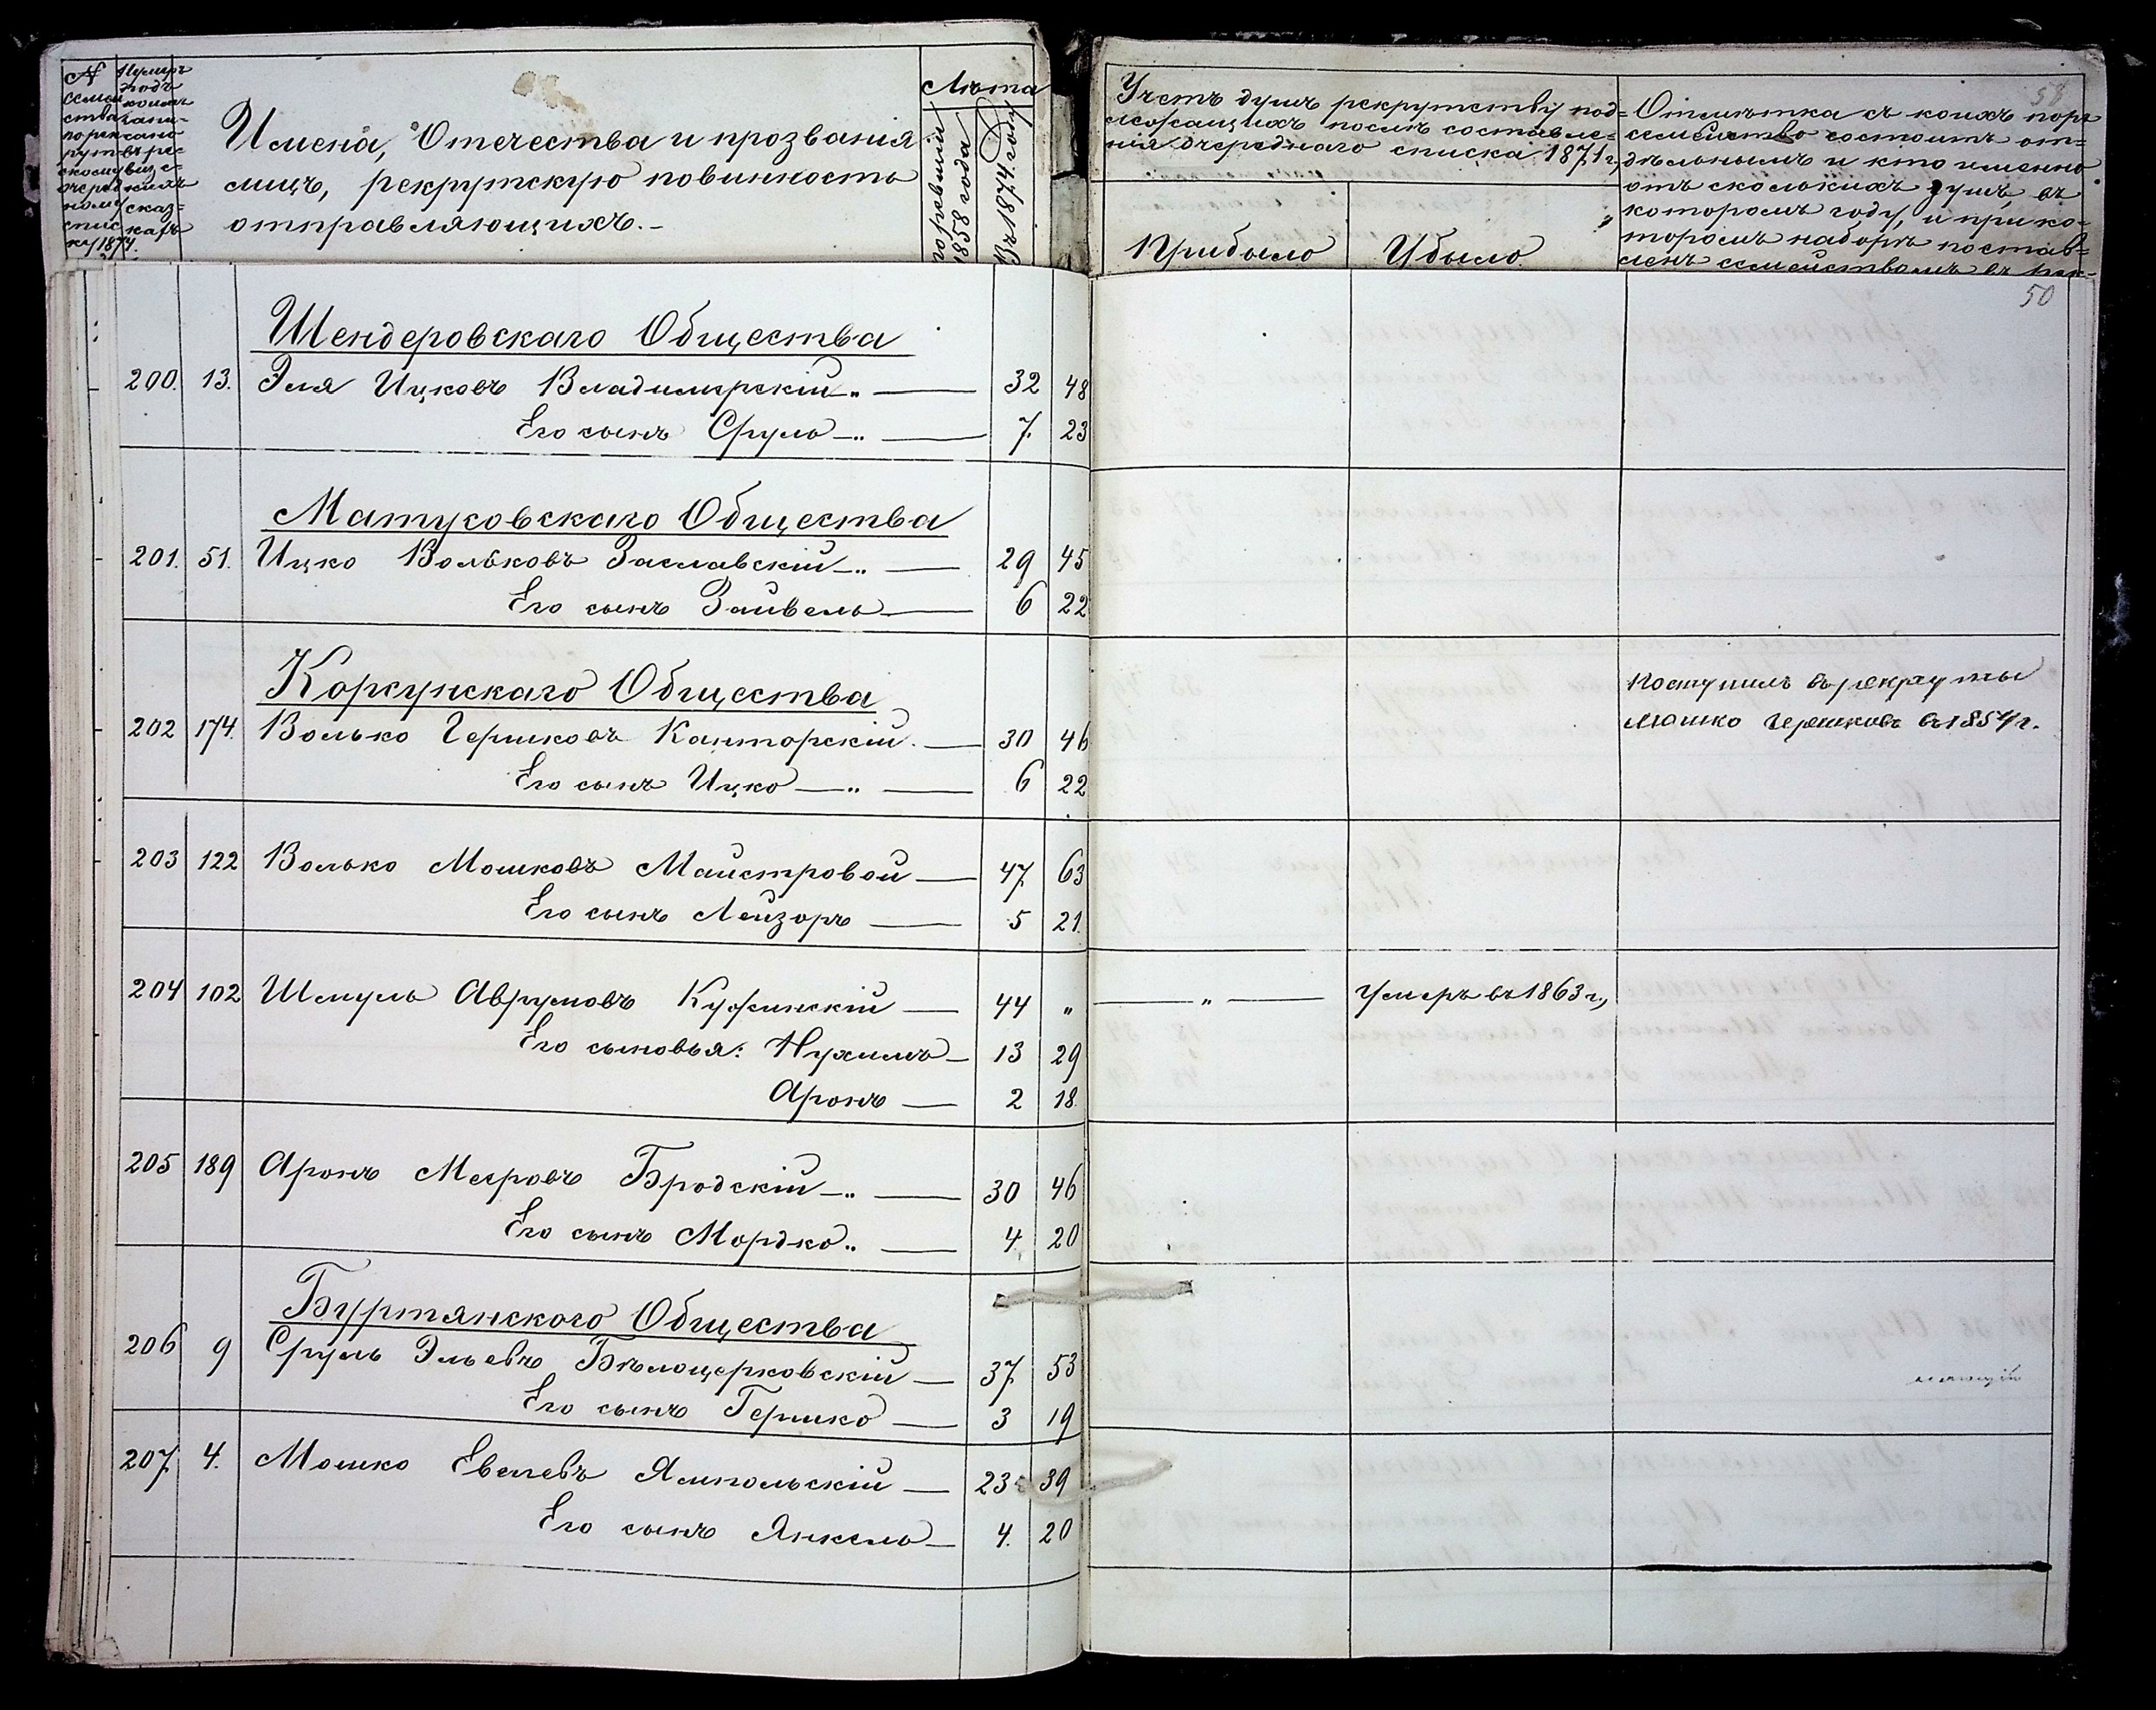 № семей
ства
по рек
рут
скому
очеред
ному
спис
ку 1874.
Нумеръ
подъ
коимъ
запи-
сано
въ ре-
визс-
кихъ
сказ-
кахъ
Имена, Отечества и прозванія
лицъ, рекрутскую повинность
отправляющихъ.-
Лѣта
по ревизіи
1858 года
Въ 1874 году
Учетъ душъ рекрутству под-
лежащихъ послѣ составле-
нія очереднаго списка 1871 г.,
Прибыло
Убыло
58
Отмѣтка съ коихъ поръ
семейство состоитъ от-
дѣльнымъ и кто именно
отъ сколькихъ душъ, въ
которомъ году, и при ко-
торомъ наборѣ постав-
ленъ семействомъ въ рек-
50
Шендеровскаго Общества
200. 13. Эля Ицковъ Владимирскій „ 32 48
Его сынъ Сруль „ 7. 23
Матусовскаго Общества
201. 51. Ицко Вольковъ Заславскій „ 29 45
Его сынъ Зайвель 6 22
Корсунскаго Общества
202 174. Волько Гершковъ Канторскій. 30 46
Поступилъ въ рекруты
Мошко Гершковъ въ 1854 г.
Его сынъ Ицко „ 6 22
203 122 Волько Мошковъ Майстровой 47 63
Его сынъ Лейзоръ 5 21.
204 102 Шмуль Аврумовъ Куфинскій 44 „ „ Умеръ въ 1863 г.,
Его сыновья: Нухимъ 13 29
Аронъ 2 18.
205 189 Аронъ Мееровъ Бродскій „ 30 46
Его сынъ Мордко „ 4. 20
Буртянского Общества
206 9 Сруль Эльевъ Бѣлоцерковскій 37 53
Его сынъ Гершко 3 19
207. 4. Мошко Евелевъ Ямпольскій 23 39
Его сынъ Янкель 4. 20